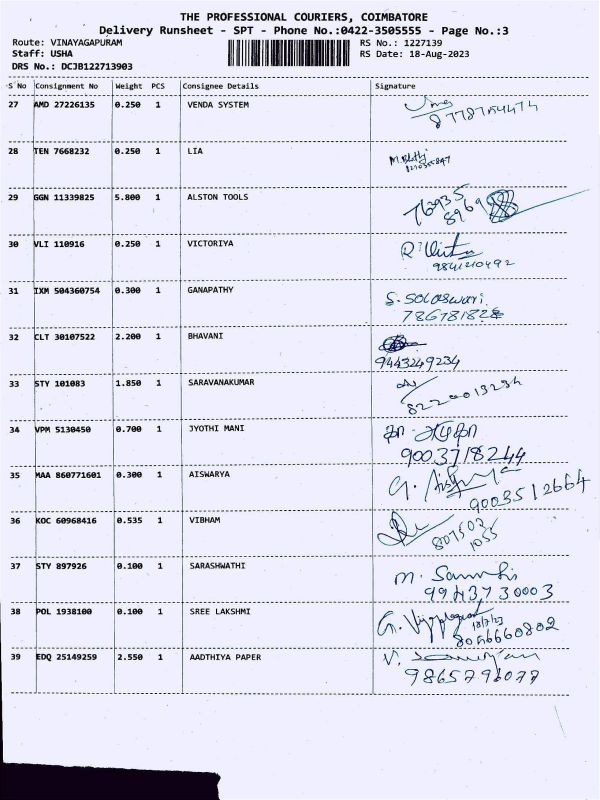 THE PROFESSIONAL COURIERS, COIMBATORE
Delivery Runsheet - SPT - Phone No.:0422-3505555 - Page No.:3
Route: VINAYAGAPURAM RS No.: 1227139
Staff: USHA RS Date: 18-Aug-2023
DRS No.: DCJB122713903
S No Consignment No Weight PCS Consignee Details Signature
27 AMD 27226135 0.250 1 VENDA SYSTEM
28 TEN 7668232 0.250 1 LIA
29 GGN 11339825 5.800 1 ALSTON TOOLS 76935
8969
30 VLI 110916 0.250 1 VICTORIYA
9841210492
31 IXM 504360754 0.300 1 GANAPATHY
32 CLT 30107522 2.200 1 BHAVANI
9443249234
33 STY 101083 1.850 1 SARAVANAKUMAR
8220013234
34 VPM 5130450 0.700 1 JYOTHI MANI
9003718244
35 MAA 860771601 0.300 1 AISWARYA G. Aishwarya
9003512664
36 KOC 60968416 0.535 1 VIBHAM
807503
1055
37 STY 897926 0.100 1 SARASHWATHI
9943730003
38 POL 1938100 0.100 1 SREE LAKSHMI
8056660802
39 EDQ 25149259 2.550 1 AADTHIYA PAPER
9865796077